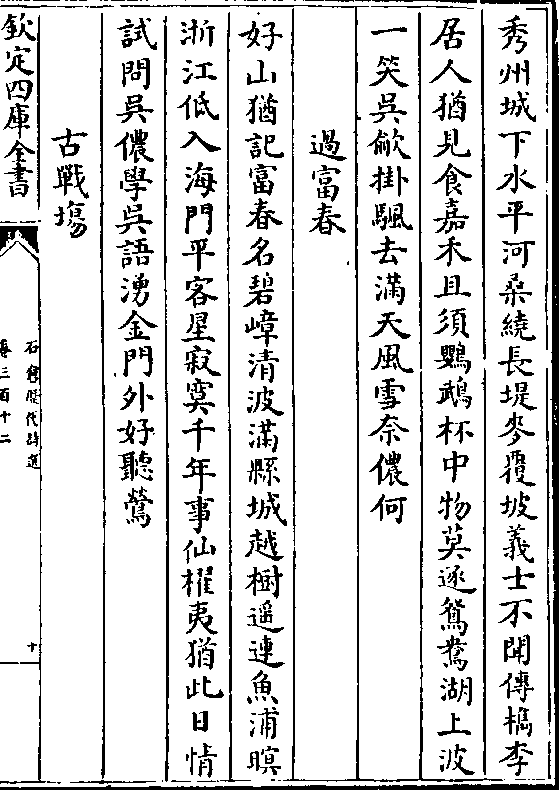 秀州城下水平河桑繞長堤麥覆坡義士不聞傳檇李
居人猶見食嘉禾且須鸚鵡杯中物莫逐鴛鴦湖上波
一笑呉歈掛颿去滿天風雪奈儂何
過富春
好山猶記富春名碧嶂清波滿縣城越樹遥連魚浦暝
浙江低入海門平客星寂寞千年事仙櫂夷猶此日情
試問呉儂學呉語湧金門外好聽鶯
古戰塲
欽定四庫全書
石倉歷代詩選
卷三百十二
十